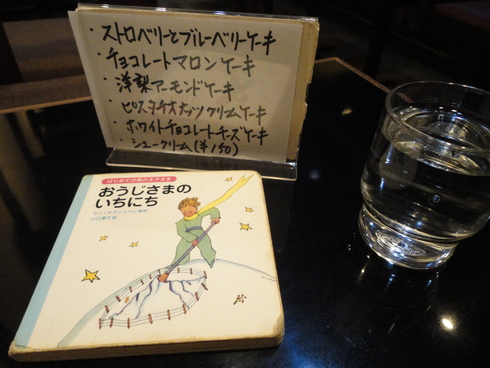 ・ストロベリーとブルーベリーケーキ
・チョコレートマロンケーキ
・洋梨アーモンドケーキ
・ピスタチオナッツクリームケーキ
・ホワイトチョコレートチーズケーキ
・シュークリーム(¥150)
はじめての星の王子さま
おうじさまの
いちにち
サン=テグジュペリ原作